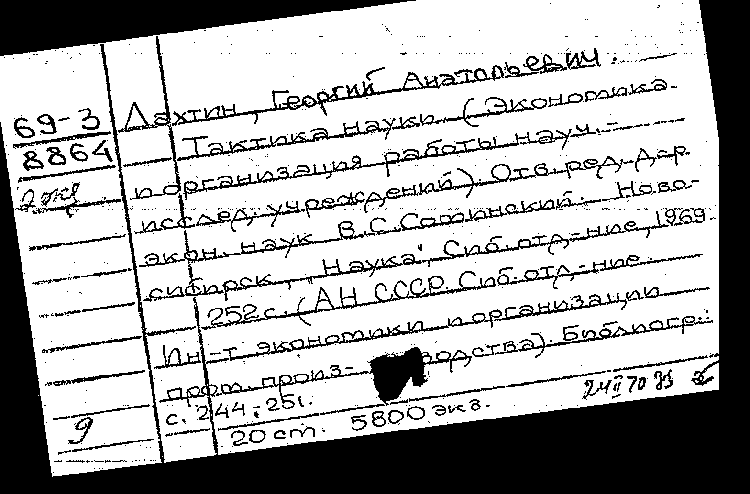 69-3
8864
2 экз
Лахтин, Георгий Анатольевич.
Тактика науки. (Экономика
и организация работы науч.-
исслед. учреждений). Отв. ред. д-р
экон. наук В.С. Соминский. Ново-
сибирск, "Наука", Сиб. отд-ние, 1969.
252 с. (АН СССР. Сиб. отд-ние.
Ин-т экономики и организации
пром. произ- водства). Библиогр.:
с. 244-251.
20 cm. 5800 экз.
9